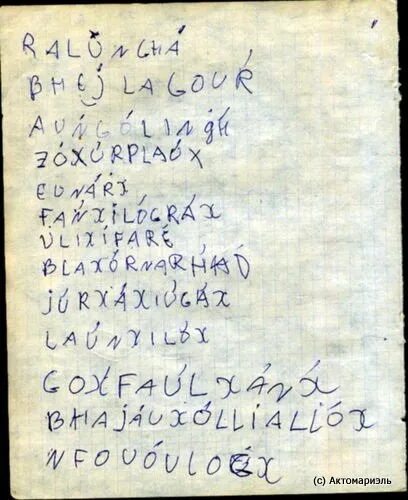 RALŬNGHÁ
BHEJ LAGOUŔ
AUŃGÓLINǴH
ZÓXÚRPLAÓX
EUNÁRX
FÁNXILÓGRÁX
ÚLIXÍFARÉ
BLAXÓRNARHÁAD
JÚRXÁXIÚGÁX
LAÚNXILÓX
GOXFAÚLXÁNX́
BHAJÁUXÓLLIALIÓX
NFOUÓULOX
(c) Актомариэль